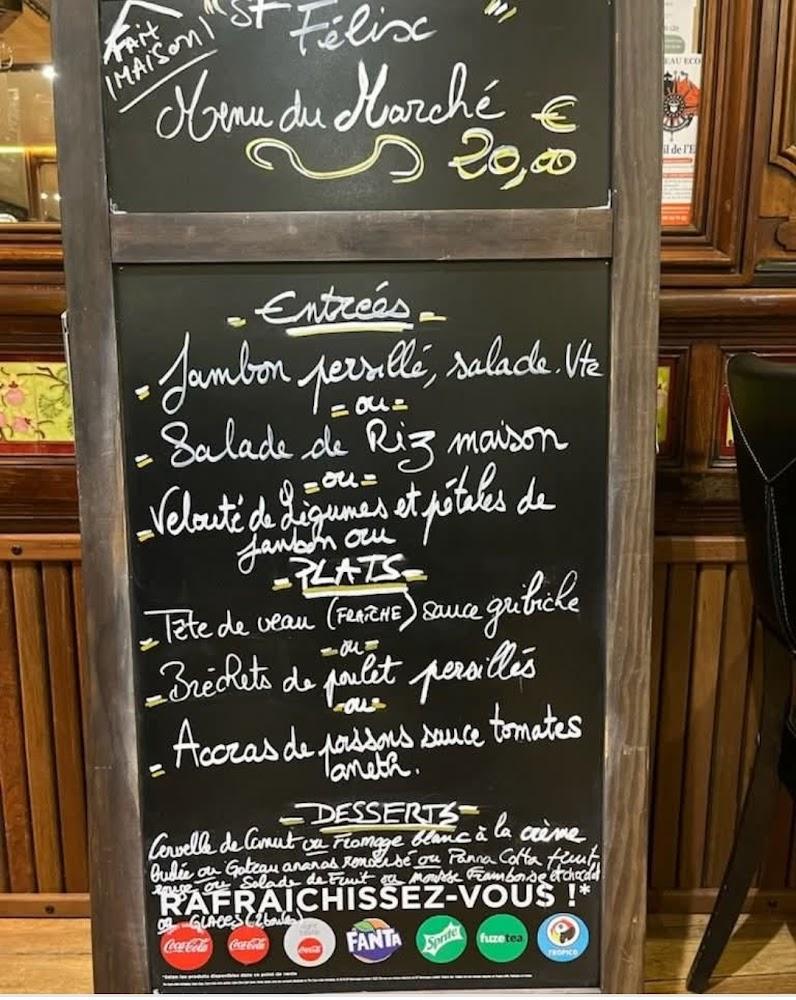 FAIT
MAISON!
"ST
Félix
"
Menu du Marché €
20,00
- Entrées -
- Jambon persillé, salade. Vte
= ou =
- Salade de Riz maison
= ou =
- Velouté de Légumes et pétales de
jambon ou
- PLATS -
- Tête de veau (FRAÎCHE) sauce gribiche
= ou =
- Bréchets de poulet persillés
= ou =
- Accras de poissons sauce tomates
aneth.
- DESSERTS -
Cervelle de Canut ou Fromage blanc à la crème
ou Gateau ananas renversé ou Panna Cotta fruit
rouge ou Salade de Fruit ou mousse Framboise et chocolat
RAFRAICHISSEZ-VOUS !*
ou GLACES (2boules)
Coca-Cola Coca-Cola Coca-Cola FANTA Sprite fuzetea TROPICO
*Selon les produits disponibles dans ce point de vente
EAU ECO
il de l'E